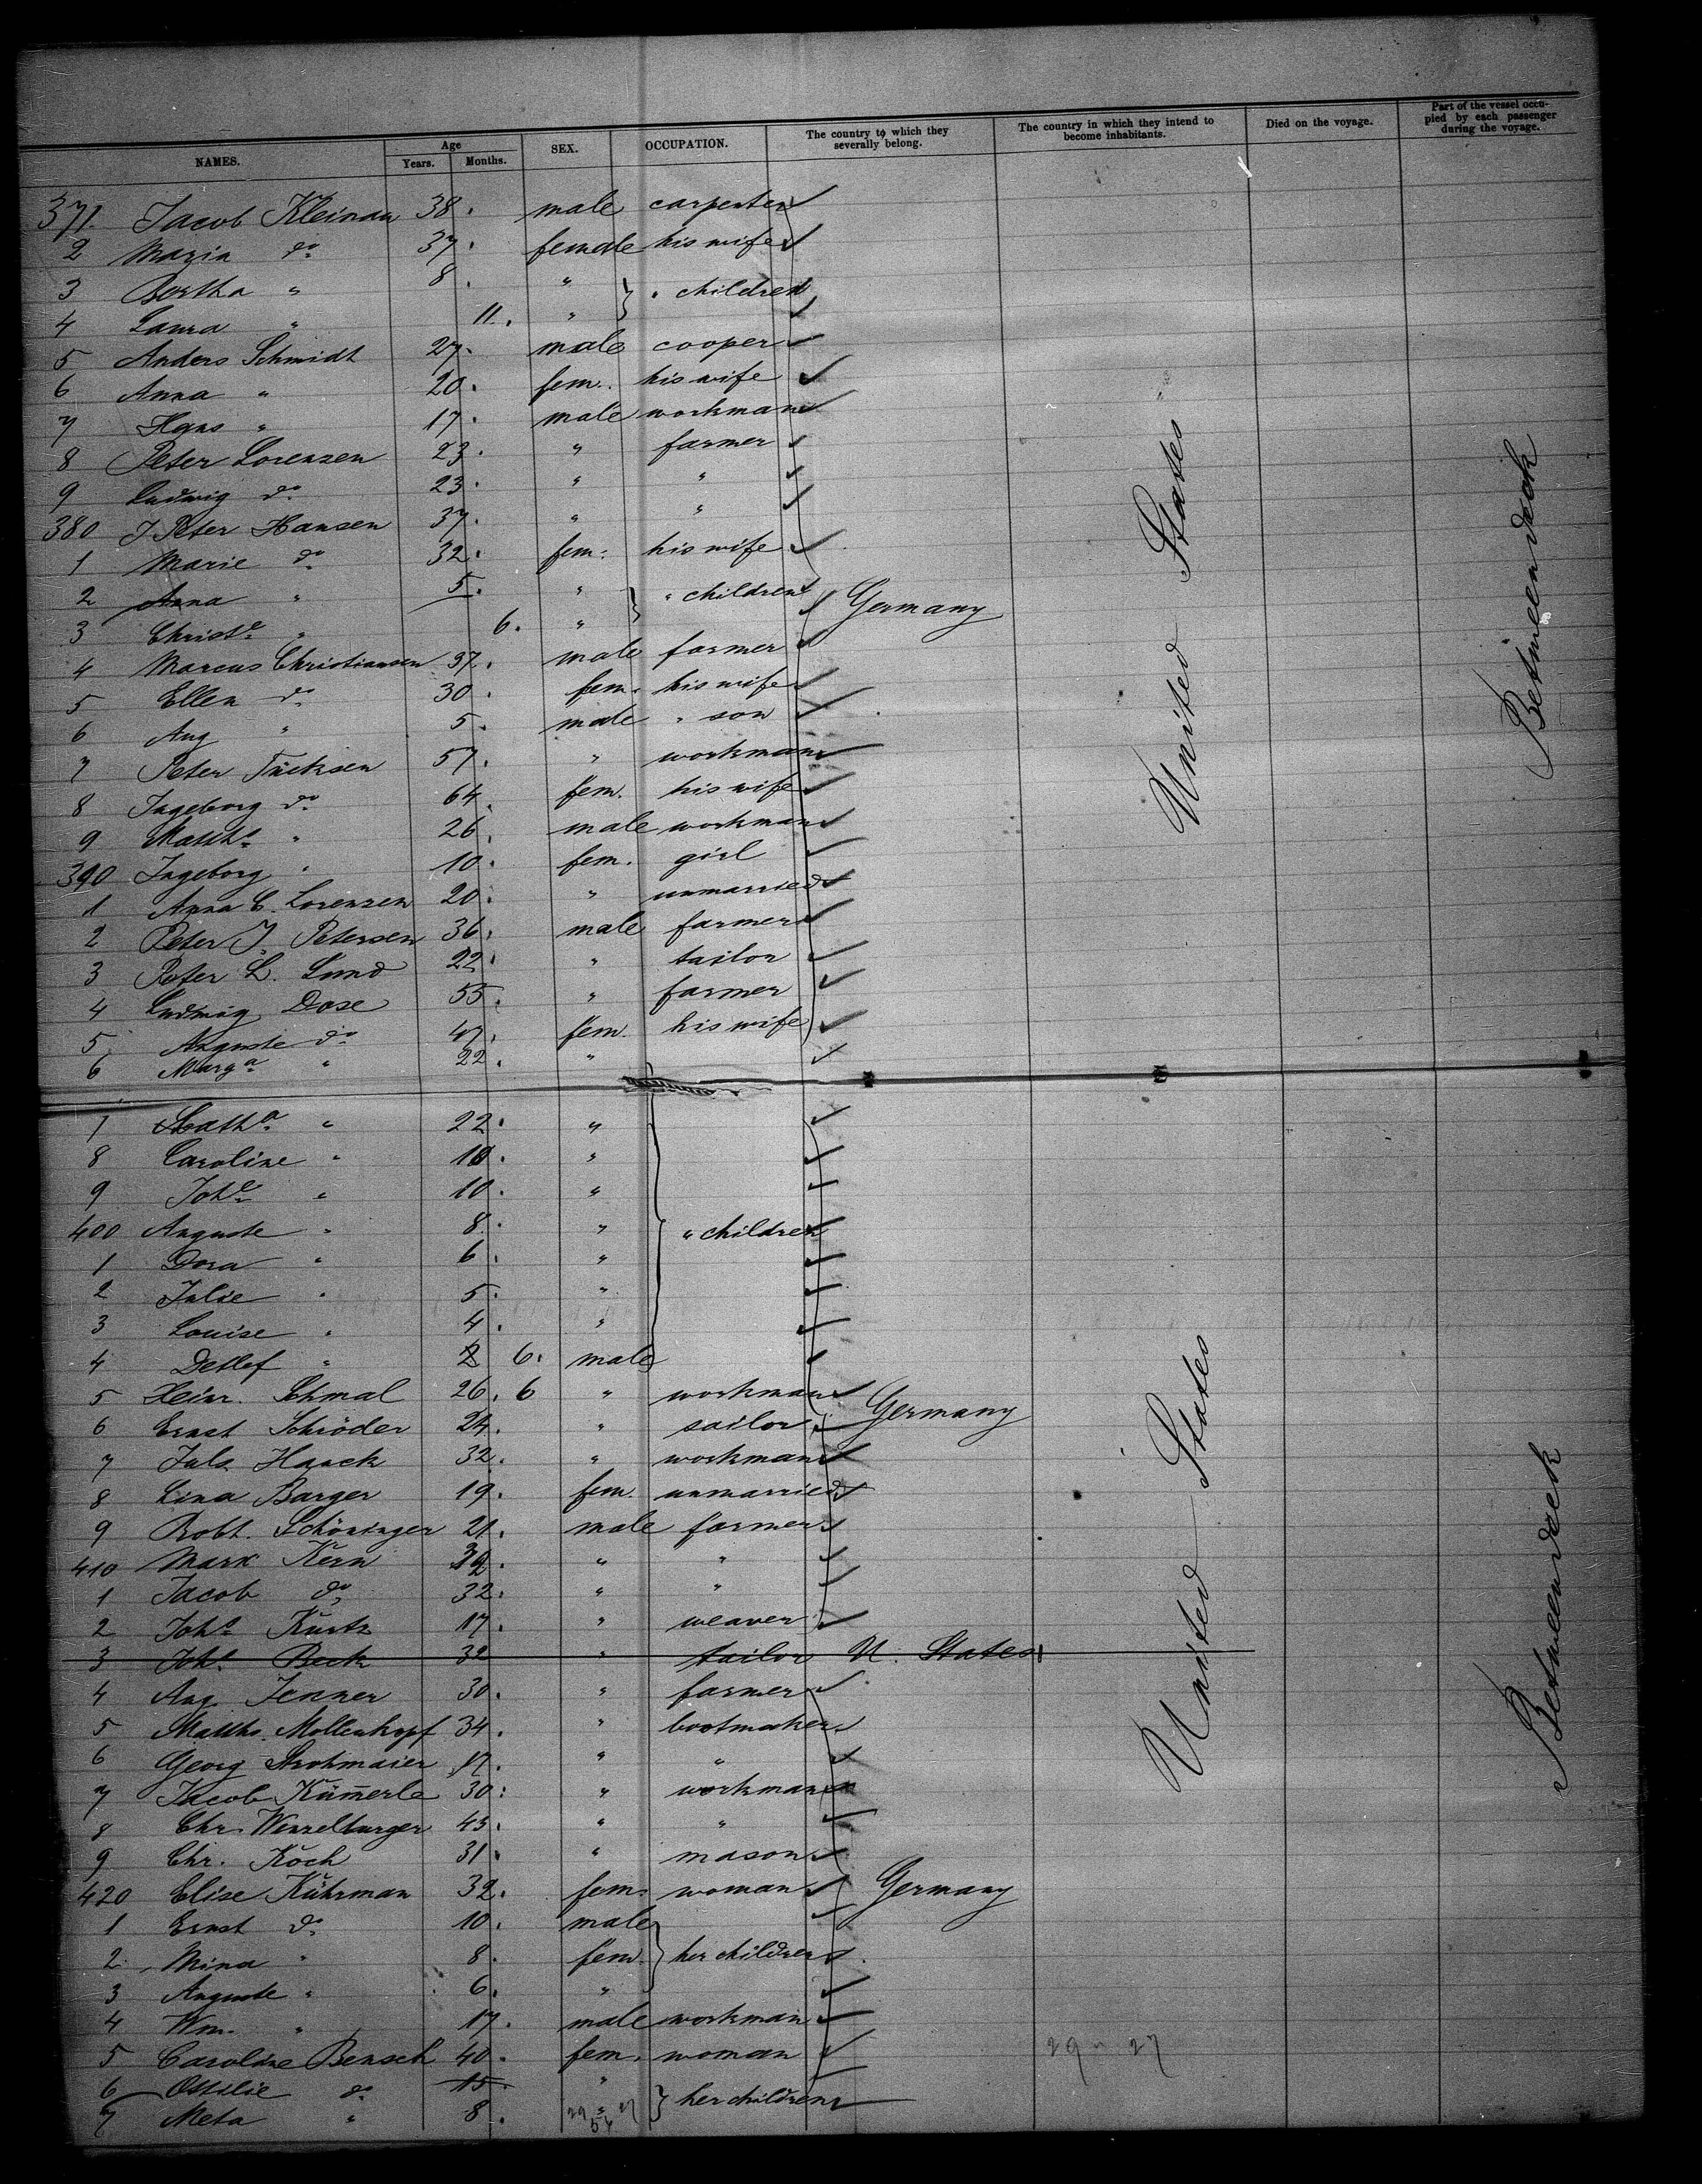 NAMES. Age Years. Months. SEX. OCCUPATION. The country to which they severally belong. The country in which they intend to become inhabitants. Died on the voyage. Part of the vessel occupied by each passenger during the voyage.
371. Jacob Kleinau 38. male carpenter
2 Maria do 37. female his wife
3 Bertha " 8. " " children
4 Laura " 11. "
5 Anders Schmidt 27. male cooper
6 Anna " 20. fem. his wife
7 Hans " 17. male workman
8 Peter Lorensen 23. " farmer
9 Ludwig do 23. " "
380 J Peter Hansen 37. " "
1 Marie do 32. fem. his wife
2 Anna " 5. " " children Germany
3 Christe " 6. "
4 Marcus Christiansen 37. male farmer
5 Ellen do 30. fem. his wife
6 Aug " 5. male " son
7 Peter 57. " workman
8 Ingeborg do 64. fem. his wife
9 Matths " 26. male workman
390 Ingeborg " 10. fem. girl
1 Anna C. Lorenzen 20. " unmarried
2 Peter J. Petersen 36. male farmer
3 Peter L. Lund 22. " tailor
4 Ludwig Dose 55. " farmer
5 Auguste do 47. fem. his wife
6 Marga " 22. "
7 Catha " 22. "
8 Caroline " 10. "
9 Johe " 10. "
400 Auguste " 8. " " children
1 Dora " 6. "
2 Julie " 5. "
3 Louise " 4. "
4 Detlef " 2 6. male
5 Heinr. Schmal 26. 6 " workman Germany
6 Ernst Schröder 24. " sailor
7 Juls Haack 32. " workman
8 Lina Barger 19. fem. unmarried
9 Robt. Schöninger 21. male farmer
410 Mark Kern 32. " "
1 Jacob do 32. " "
2 Johs Kurtz 17. " weaver
3 Johs Beck 32 " tailor U. States
4 Aug. Jenner 30. " farmer
5 Matths. Mollenkopf 34. " bootmaker
6 Georg Strohmaier 17. " "
7 Jacob Küm̄erle 30. " workman
8 Chr. Wenzelburger 43. " "
9 Chr. Koch 31. " mason
420 Elise Kührman 32. fem. woman Germany
1 Ernst do 10. male
2 Mina " 8. fem. her children
3 Auguste " 6. "
4 Wm. " 17. male workman
5 Caroline Bensch 40. fem. woman 29 " 27
6 Ottilie do 15. "
7 Meta " 8. her children
United States
Betweendeck
United States
Betweendeck